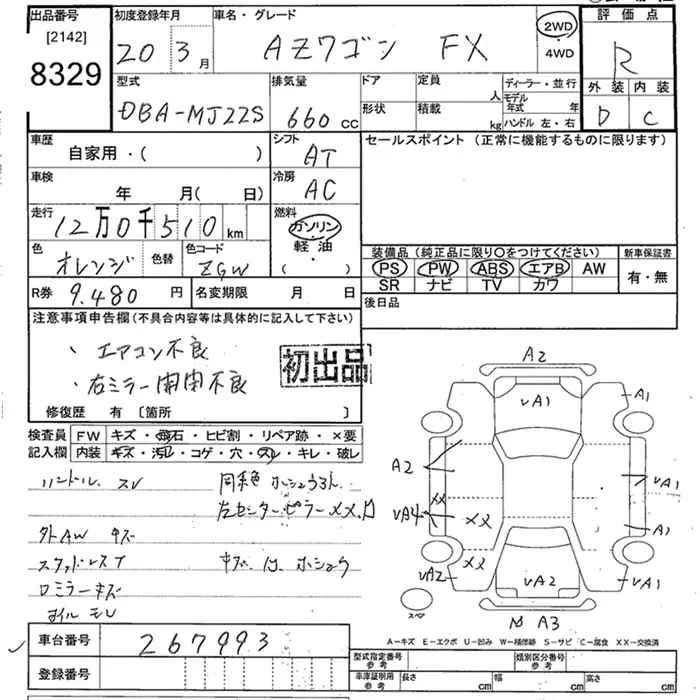 出品番号 初度登録年月 車名・グレード 評価点
[2142] 8329 20 3月 AZワゴン FX 2WD 4WD R
型式 排気量 ドア 定員 人 ディーラー・並行 外装 内装
DBA-MJ22S 660cc 形状 積載 kg モデル年式 年 ハンドル 左・右 D C
車歴 シフト セールスポイント (正常に機能するものに限ります)
自家用・( ) AT
車検 冷房
年 月( 日) AC
走行 燃料
12万0千510km ガソリン
色 色替 色コード 軽油 装備品 (純正品に限り〇をつけてください) 新車保証書
オレンジ ZGW ( ) PS PW ABS エアB AW 有・無
SR ナビ TV カワ
R券 9.480円 名変期限 月 日 後日品
注意事項申告欄(不具合内容等は具体的に記入して下さい)
・エアコン不良
・右ミラー開閉不良
初出品
修復歴 有 〔箇所 〕
検査員 FW キズ・飛石・ヒビ割・リペア跡・×要
記入欄 内装 キズ・汚れ・コゲ・穴・スレ・キレ・破レ
ハンドル スレ 同系色 ホシュウろん
左センターピラー XX.
外AW キズ
スタッドレス キズ、 ホシュウ
ミラーキズ
オイルモレ
A2
VA1
A1
A2
VA1
XX
VA4 XX
A1
XX
VA2 VA2 VA1
スペア
A3
A-キズ E-エクボ U-凹み W-補修跡 S-サビ C-腐食 XX-交換済
車台番号 267993
登録番号
型式指定番号 参考 類別区分番号 参考
車庫証明用 参考 長さ cm 幅 cm 高さ cm